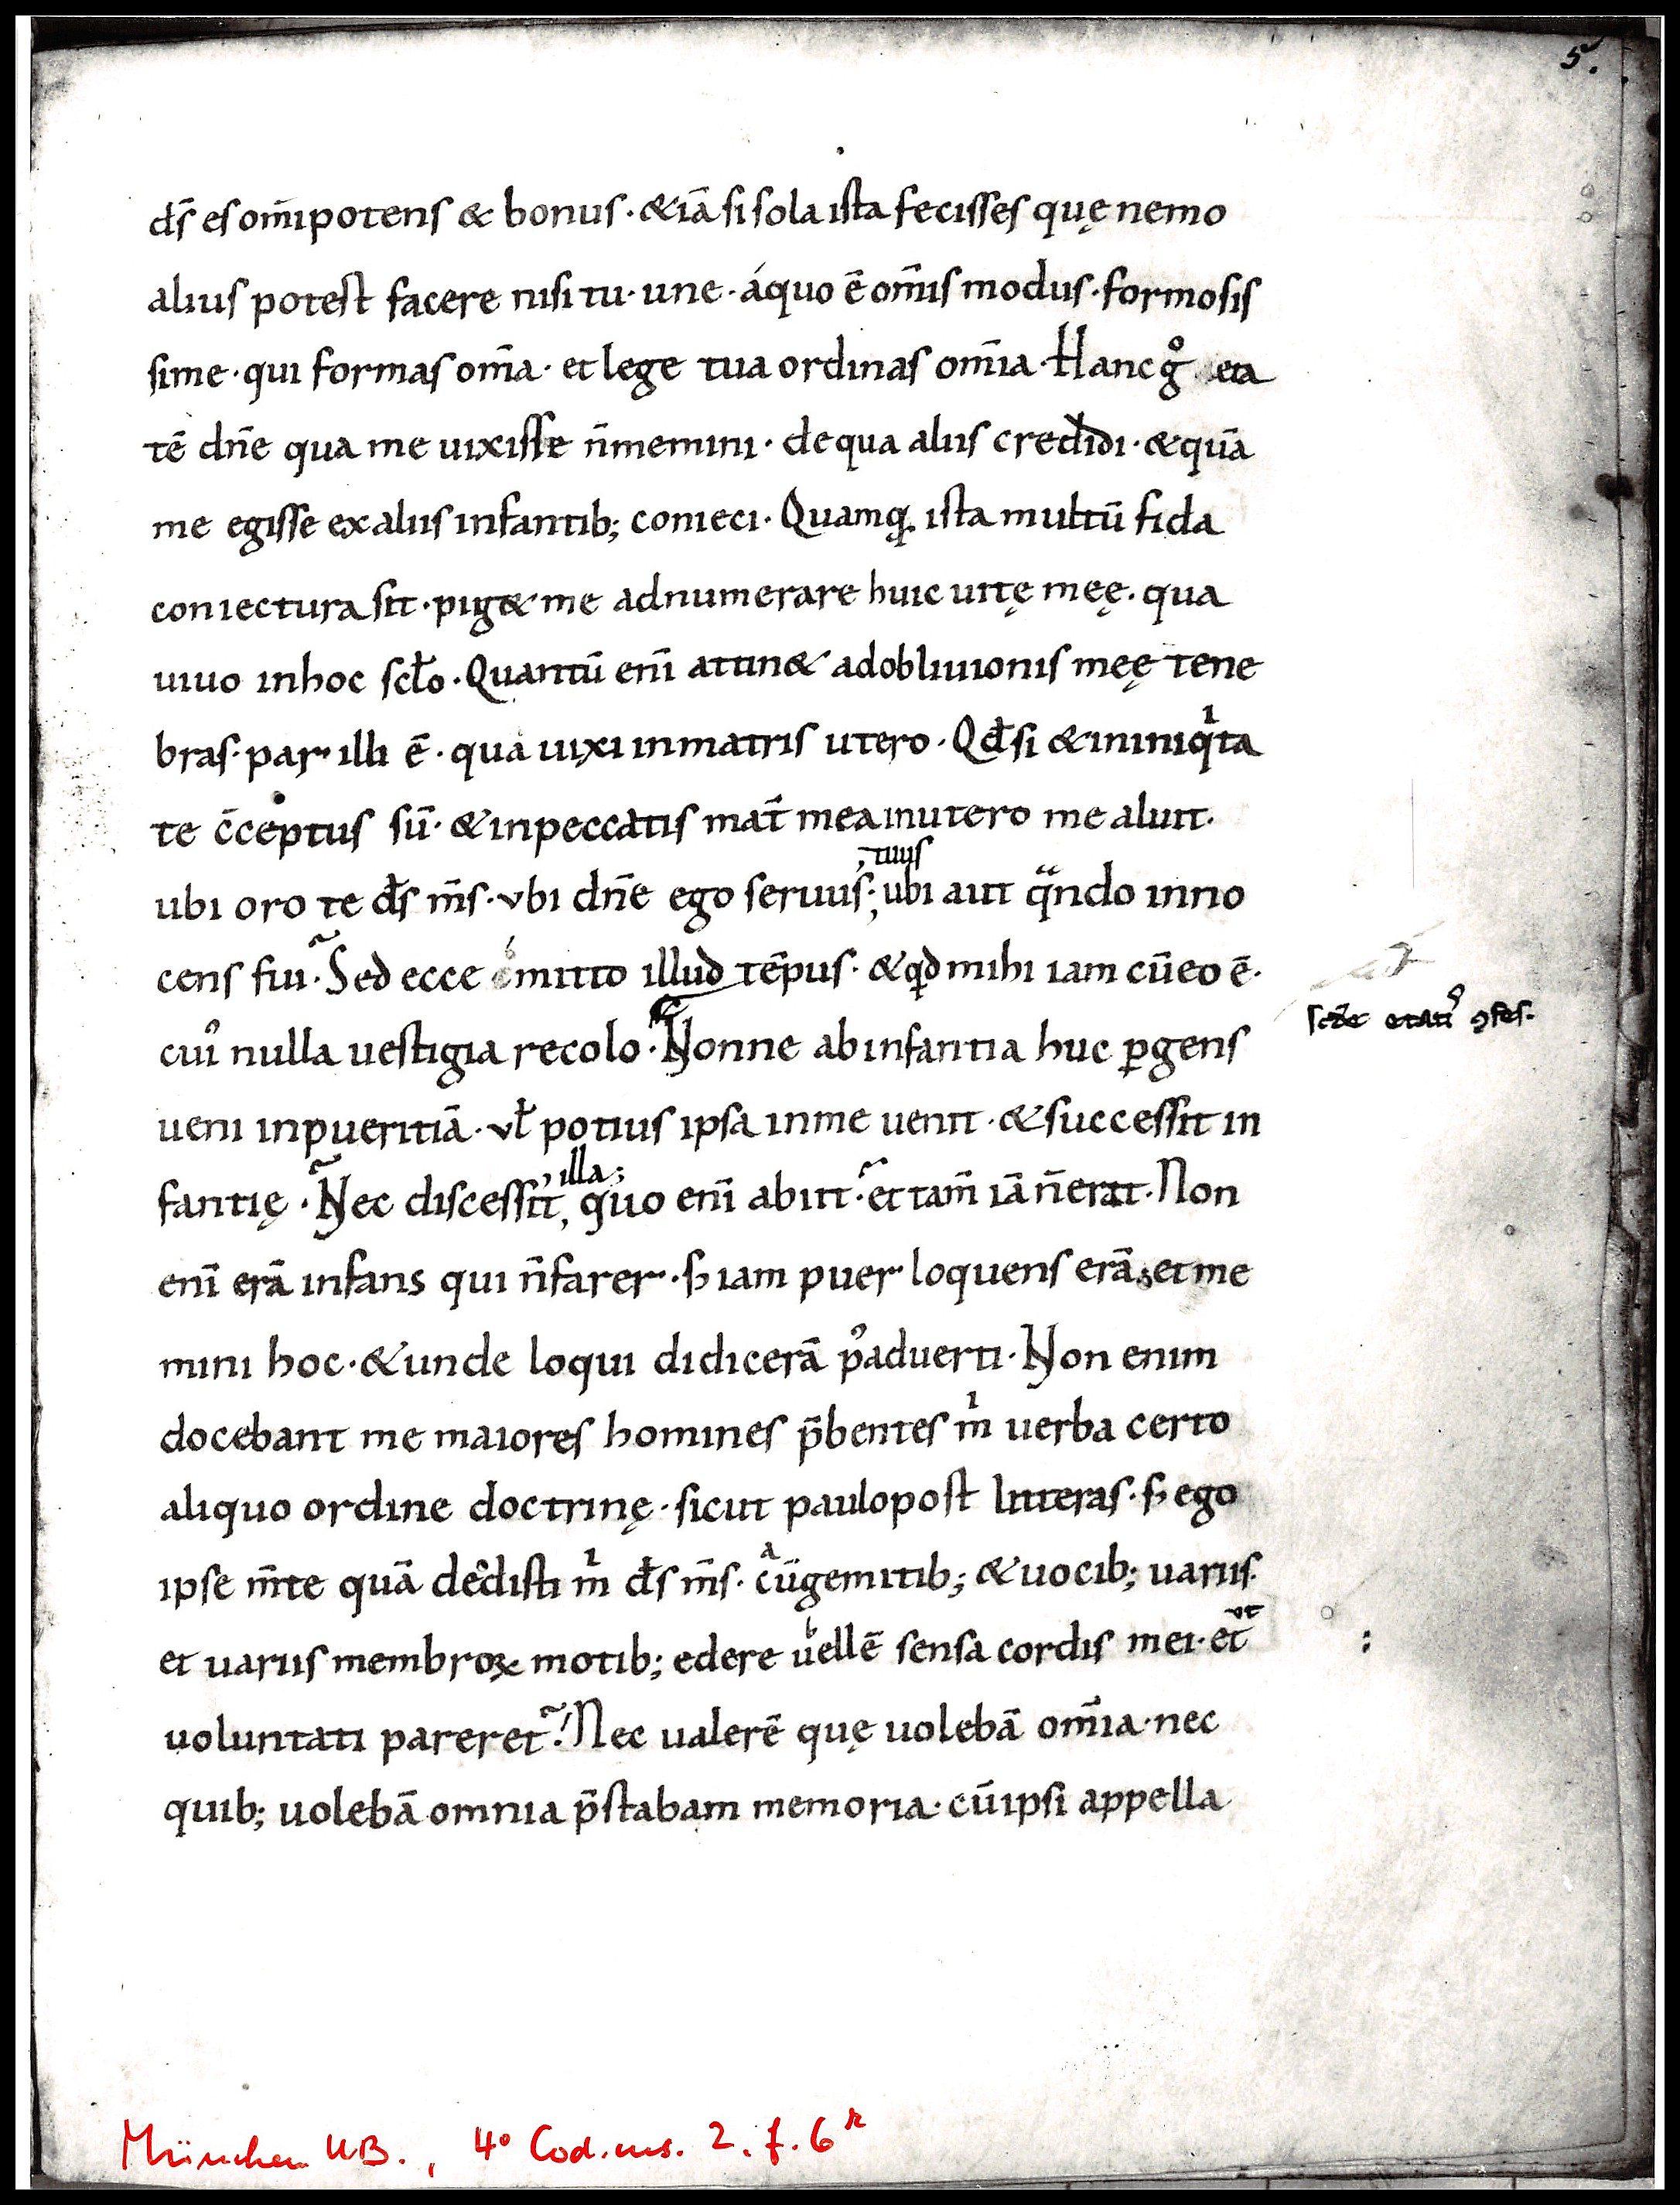 5.
ds̄ es om̄ipotens & bonus · &iā si sola ista fecisses quę nemo
alius potest facere nisi tu · une · áquo ē om̄is modus · formosis
sime · qui formas om̄a · et lege tua ordinas om̄ia · Hanc gͦ eta
tē dn̄e qua me uixisse n̄memini · de qua aliis credidi · &quā
me egisse ex aliis infantib; conieci · Quamq; ista multū fida
coniectura sit · pig& me adnumerare huic uitę męę · qua
uiuo inhoc scło · Quantū eni̅ attin& adobliuionis meę tene
bras · par illi ē · qua uixi inmatris utero · Qđ si &ininiqͥta
te c̄ceptus sū · &inpeccatis mat̄ mea inutero me aluit ·
ubi oro te đs m̄s · vbi dn̄e ego seruus , tuus ; ubi aut qᷓndo inno
cens fui · Sed ecce ómitto illud tēpus · &qđ mihi iam cūeo ē ·
cuiꝰ nulla uestigia recolo · Nonne abinfantia huc ꝑgens
scd̄e etatiꝰ ꝯfes.
ueni inpueritiā · vł potius ipsa inme uenit · &successit in
fantię · Nec discessit , illa ; quo eni̅ abiit · et tam̄ iā n̄erat · Non
eni̅ erā infans qui n̄farer · ẜ iam puer loquens erā ; et me
mini hoc · &unde loqui didicerā pꝰaduerti · Non enim
docebant me maiores homines p̄bentes mͥ uerba certo
aliquo ordine doctrinę · sicut paulopost litteras · ẜ ego
ipse m̄te quā dedisti mͥ đs m̄s · cū gemitib; &uocib; uariis ·
et uariis membroꝝ motib; edere uellē sensa cordis mei · et vt
uoluntati pareret · Nec ualerē quę uolebā om̄ia · nec
quib; uolebā omnia p̄stabam memoria · cū ipsi appella
München UB., 4° Cod. ms. 2. f. 6ʳ